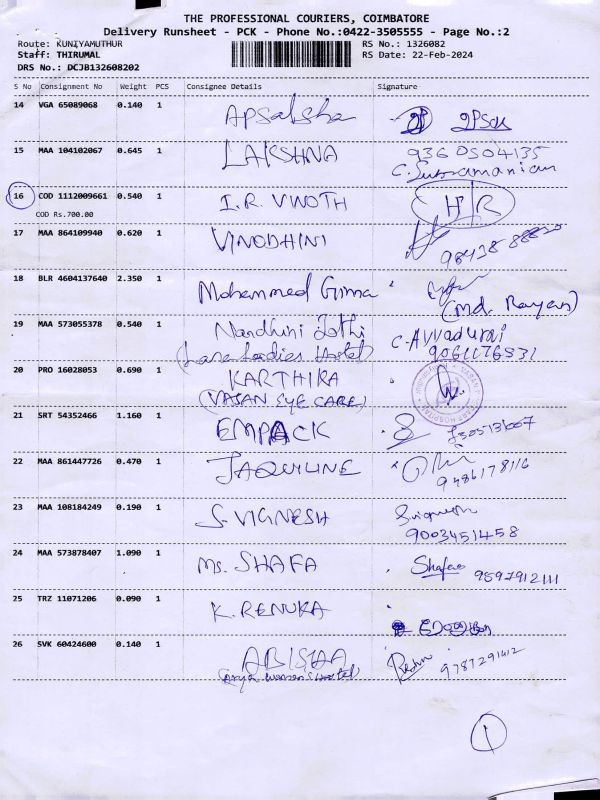 THE PROFESSIONAL COURIERS, COIMBATORE
Delivery Runsheet - PCK - Phone No.:0422-3505555 - Page No.:2
Route: KUNIYAMUTHUR RS No.: 1326082
Staff: THIRUMAL RS Date: 22-Feb-2024
DRS No.: DCJB132608202
S No Consignment No Weight PCS Consignee Details Signature
14 VGA 65089068 0.140 1 Apsalsha
15 MAA 104102067 0.645 1 LAKSHNA 936 0504135
C. Subramanian
16 COD 1112009661 0.540 1 I.R. VINOTH HR
COD Rs.700.00
17 MAA 864109940 0.620 1 VINODHINI
18 BLR 4604137640 2.350 1 Mohammed
(Md. Rayan)
19 MAA 573055378 0.540 1 Nandhini Jothi C. Avvadurai
(Lara Ladies Hostel) 9061176831
20 PRO 16028053 0.690 1 KARTHIKA
(VASAN EYE CARE)
21 SRT 54352466 1.160 1 EMPACK
22 MAA 861447726 0.470 1 JAQULINE 9486178116
23 MAA 108184249 0.190 1 S. VIGNESH
9003451458
24 MAA 573878407 1.090 1 Ms. SHAFA Shafa 9597912111
25 TRZ 11071206 0.090 1 K. RENUKA
26 SVK 60424600 0.140 1 ABISHA 9787291412
1